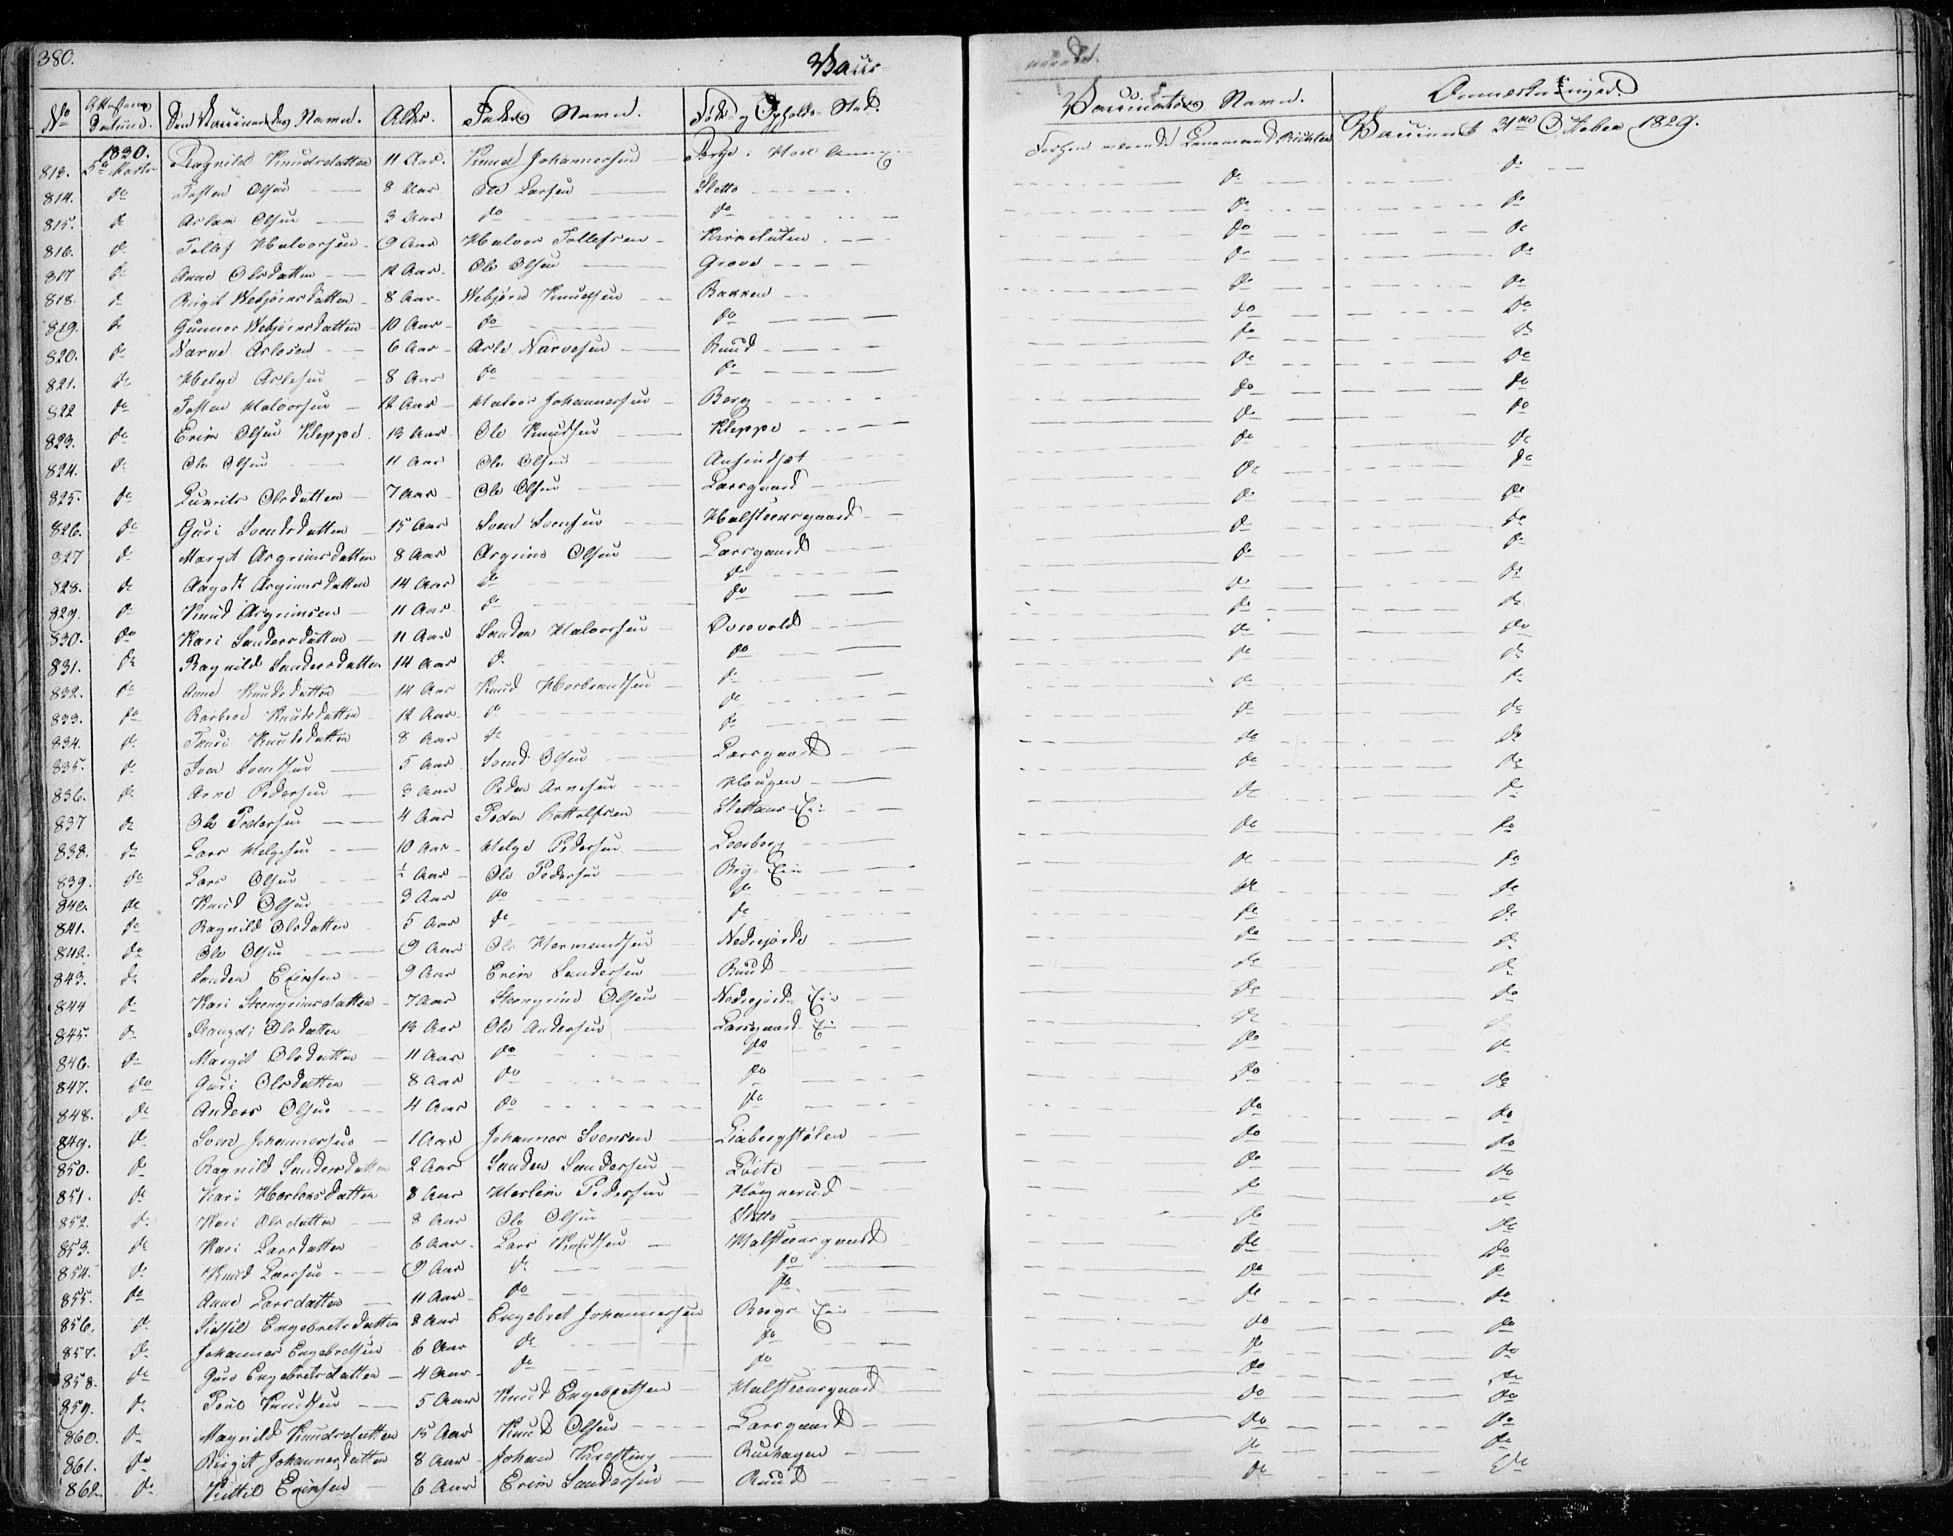 380.
Vacci
No
Datum.
Den Vaccineredes Navn.
Alder.
Faders Navn.
Føde og Opholds-Sted.
Vaccinators Navn.
Anmærkninger.
1830.
813. 5te Marts Ragnild Knudsdatten 11 Aar. Knud Johannesen Lensmand Vaccineret October 1829.
814. do Tosten Olsen 8 Aar Ole Larsen Sletto do do
815. do Aslam Olsen 3 Aar do do do do
816. do Tollef Halvorsen 9 Aar Halvor Tollefsen do do
817 do Anne Olsdatten 12 Aar. Ole Olsen Grove do do
818. do Birgit Webjørnsdatten 8 Aar Webjørn Knudsen Bakken do do
819. do Gunner Webjørnsdatten 10 Aar do do do do
820. do Narve Aslesen 6 Aar Asle Narvesen Ruud do do
821. do Helge Aslesen 8 Aar do do do do
822 do Tosten Halvorsen 12 Aar Halvor Johannesen Berg do do
823. do Erik Olsen Kleppe 13 Aar Ole Knudsen Kleppe do do
824. do Ole Olsen 11 Aar Ole Olsen do do
825. do Olsdatten 7 Aar Ole Olsen Larsgaard do do
826. do Guri Svendsdatten 15 Aar Sven Svensen Halsteensgaard do do
827 do Margit Asgrimsdatten 8 Aar Asgrim Olsen Larsgaard do do
828. do Aagot Asgrimsdatten 14 Aar do do do do
829. do Knud Asgrimsen 11 Aar do do do do
830. do Kari Sandersdatten 11 Aar Sander Halvorsen do do
831. do Ragnild Sandersdatten 14 Aar do do do do
832. do Anne Knudsdatten 14 Aar Knud Herbrandsen do do do
833. do Barbroe Knudsdatten 12 Aar do do do do
834. do Turi Knudsdatten 8 Aar do do do do
835. do Sven Svendsen 5 Aar Svend Olsen Larsgaard do do
836. do Arne Pedersen 3 Aar Peder Arnesen Hougen do do
837 do Ole Pedersen 4 Aar Peder Bottolfsen do do
838. do Lars Helgesen 10 Aar Helge Pedersen do do
839. do Lars Olsen ½ Aar Ole Pedersen do do
840. do Knud Olsen 3 Aar do do do do
841. do Ragnild Olsdatten 5 Aar do do do do
842. do Ole Olsen 9 Aar Ole Hermundsen Nedrejorde do do
843. do Sander Eriksen 9 Aar Erik Sandersen Ruud do do
844 do Kari Steengrimsdatten 7 Aar Steengrim Olsen do do
845. do Rangdi Olsdatten 13 Aar Ole Andersen Larsgaards Eie do do
846. do Margit Olsdatten 11 Aar do do do do
847. do Guri Olsdatten 8 Aar do do do do
848. do Anders Olsen 4 Aar do do do do
849. do Sven Johannesen 1 Aar Johannes Svensen Liabergstølen do do
850. do Ragnild Sandersdatten 2 Aar Sander Sandersen do do
851. do Kari Herleksdatten 8 Aar Herleik Pedersen Høgnerud do do
852. do Kari Olsdatten 8 Aar Ole Olsen Sletto do do
853. do Kari Larsdatten 6 Aar Lars Knudsen Halsteensgaard do do
854. do Knud Larsen 9 Aar do do do do
855. do Anne Larsdatten 11 Aar do do do do
856. do Sidsel Engebretsdatten 8 Aar Engebret Johannesen Bergs Eie do do
857. do Johannes Engebretsen 6 Aar do do do do
858. do Guro Engebretsdatten 4 Aar do do do do
859. do Knudsen 5 Aar Knud Engebretsen Halsteensgaard do do
860. do Magnild Knudsdatten 15 Aar Knud Olsen Larsgaard do do
861. do Birgit Johannesdatten 8 Aar Johan Kresting Ruehagen do do
862. do Kittil Eriksen 6 Aar Erik Sandersen Ruud do do